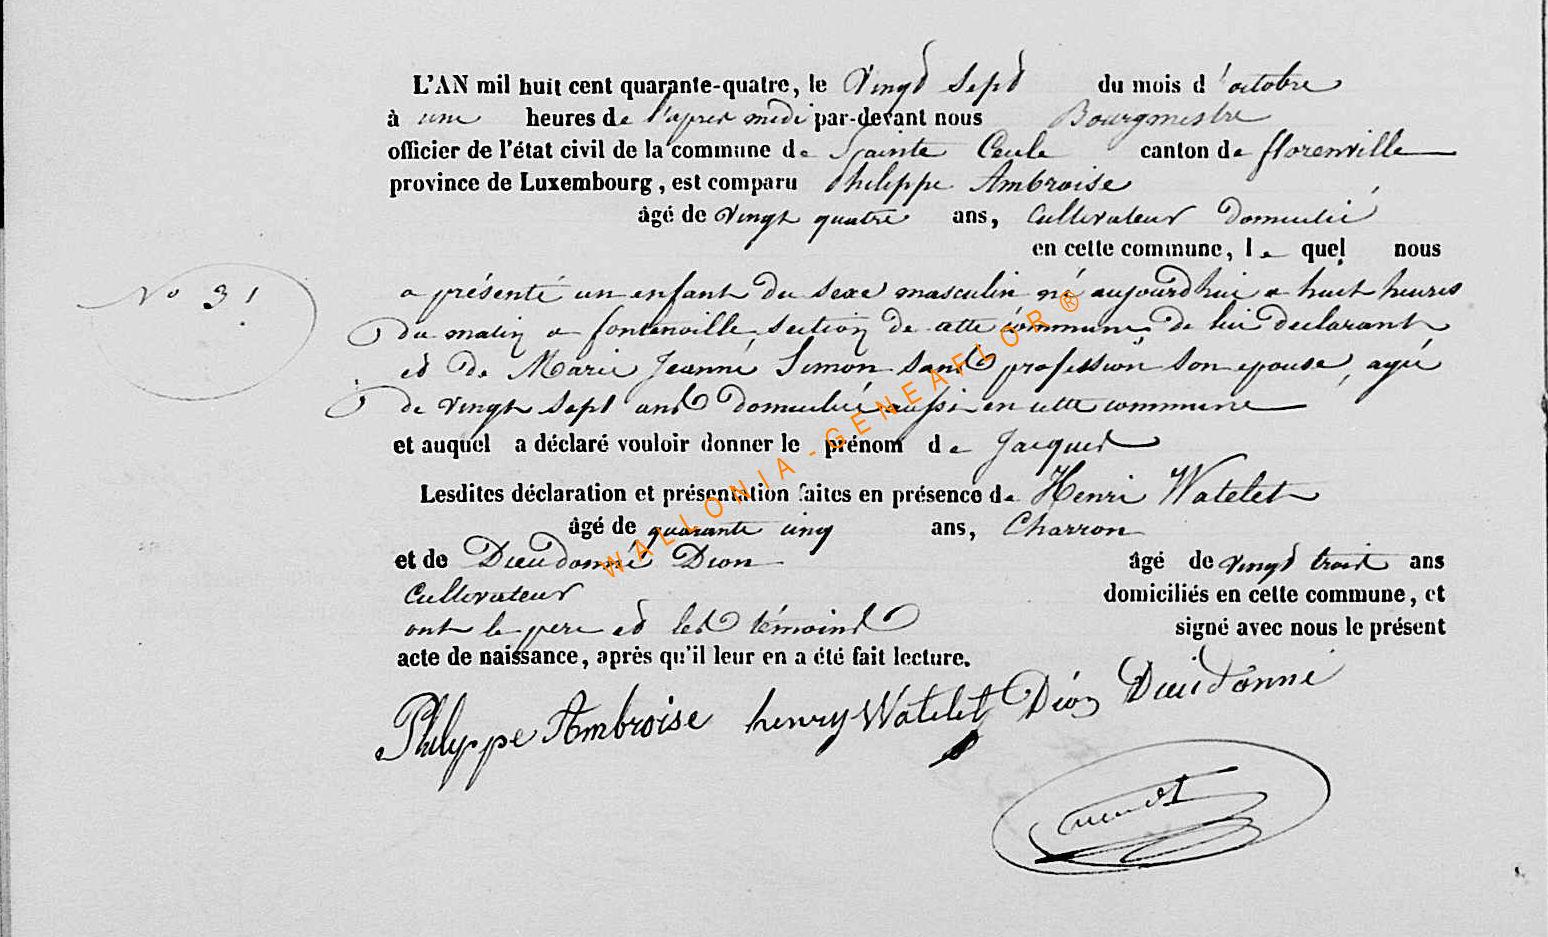 L'AN mil huit cent quarante-quatre, le vingt sept du mois d'octobre
à une heures de l'apres midi par-devant nous Bourgmestre
officier de l'état civil de la commune de Sainte Cecile canton de florenville
province de Luxembourg, est comparu Philippe Ambroise
âgé de vingt quatre ans, cultivateur domicilié
en cette commune, lequel nous
No 31
a présenté un enfant du sexe masculin né aujourd'hui a huit heures
du matin a fontenoille section de cette commune, de lui declarant
et de Marie Jeanne Simon sans profession son epouse, agée
de vingt sept ans domiciliée aussi en cette commune
et auquel a déclaré vouloir donner le prénom de Jacques
Lesdites déclaration et présentation faites en présence de Henri Watelet
âgé de quarante cinq ans, Charron
et de Dieudonné Dion âgé de vingt trois ans
Cultivateur domiciliés en cette commune, et
ont le pere et les témoins signé avec nous le présent
acte de naissance, après qu'il leur en a été fait lecture.
Philippe Ambroise henry Watelet Dion Dieudonné
WALLONIA-GENEAFLOR®